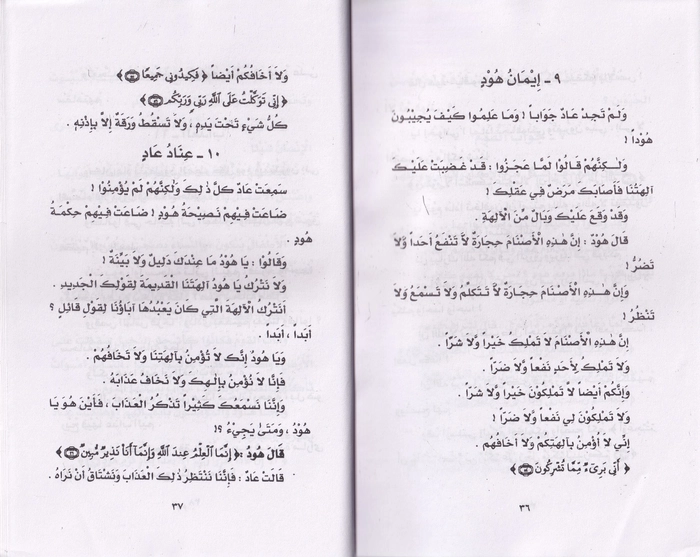 ٩ ـ إِيْمَانُ هُوْدٍ
وَلَمْ تَجِدْ عَادٌ جَوَاباً ! وَمَا عَلِمُوا كَيْفَ يُجِيْبُونَ
هُوْداً !
وَلٰـكِنَّهُمْ قَالُوْا لَمَّا عَجَزُوا : قَدْ غَضِبَتْ عَلَيْكَ
آلِهَتُنَا فَأَصَابَكَ مَرَضٌ فِي عَقْلِكَ !
وَقَدْ وَقَعَ عَلَيْكَ وَبَالٌ مِّنَ الْآلِهَةِ .
قَالَ هُوْدٌ : إِنَّ هٰـذِهِ الْأَصْنَامَ حِجَارَةٌ لَا تَنْفَعُ أَحَداً وَّلَا
تَضُرُّ !
وَإِنَّ هٰـذِهِ الْأَصْنَامَ حِجَارَةٌ لَا تَتَكَلَّمُ وَلَا تَسْمَعُ وَلَا
تَنْظُرُ !
إِنَّ هٰـذِهِ الْأَصْنَامَ لَا تَمْلِكُ خَيْراً وَّلَا شَرّاً .
وَلَا تَمْلِكُ لِأَحَدٍ نَفْعاً وَّلَا ضَرّاً .
وَإِنَّكُمْ أَيْضاً لَا تَمْلِكُوْنَ خَيْراً وَّلَا ضَرّاً .
وَلَا تَمْلِكُوْنَ لِي نَفْعاً وَّلَا ضَرّاً !
إِنِّي لَا أُؤْمِنُ بِآلِهَتِكُمْ وَلَا أَخَافُهُمْ .
﴿ أَنِّي بَرِيءٌ مِّمَّا تُشْرِكُونَ ﴾
٣٦
وَلَا أَخَافُكُمْ أَيْضاً ﴿ فَكِيدُونِي جَمِيعًا ﴾
﴿ إِنِّي تَوَكَّلْتُ عَلَى اللَّهِ رَبِّي وَرَبِّكُم ﴾
كُلُّ شَيْءٍ تَحْتَ يَدِهِ ، وَلَا تَسْقُطُ وَرَقَةٌ إِلَّا بِإِذْنِهِ .
١٠ ـ عِنَادُ عَادٍ
سَمِعَتْ عَادٌ كُلَّ ذٰلِكَ وَلٰكِنَّهُمْ لَمْ يُؤْمِنُوْا !
ضَاعَتْ فِيْهِمْ نَصِيْحَةُ هُوْدٍ ! ضَاعَتْ فِيْهِمْ حِكْمَةُ
هُودٍ .
وَقَالُوْا : يَا هُودُ مَا عِنْدَكَ دَلِيْلٌ وَلَا بَيِّنَةٌ !
وَلَا نَتْرُكُ يَا هُوْدُ آلِهَتَنَا الْقَدِيْمَةَ لِقَوْلِكَ الْجَدِيدِ .
أَنَتْرُكُ الْآلِهَةَ الَّتِي كَانَ يَعْبُدُهَا آبَاؤُنَا لِقَوْلِ قَائِلٍ ؟
أَبَداً ، أَبَداً .
وَيَا هُوْدُ إِنَّكَ لَا تُؤْمِنُ بِآلِهَتِنَا وَلَا تَخَافُهُمْ .
فَإِنَّا لَا نُؤْمِنُ بِإِلٰهِكَ وَلَا نَخَافُ عَذَابَهُ .
وَإِنَّنَا نَسْمَعُكَ كَثِيْراً تَذْكُرُ الْعَذَابَ ، فَأَيْنَ هُوَ يَا
هُوْدُ ، وَمَتَىٰ يَجِيْءُ ؟!
قَالَ هُودٌ : ﴿ إِنَّمَا الْعِلْمُ عِندَ اللَّهِ وَإِنَّمَا أَنَا نَذِيرٌ مُّبِينٌ ﴾
قَالَتْ عَادٌ : فَإِنَّنَا نَنْتَظِرُ ذٰلِكَ الْعَذَابَ وَنَشْتَاقُ أَنْ نَرَاهُ .
٣٧